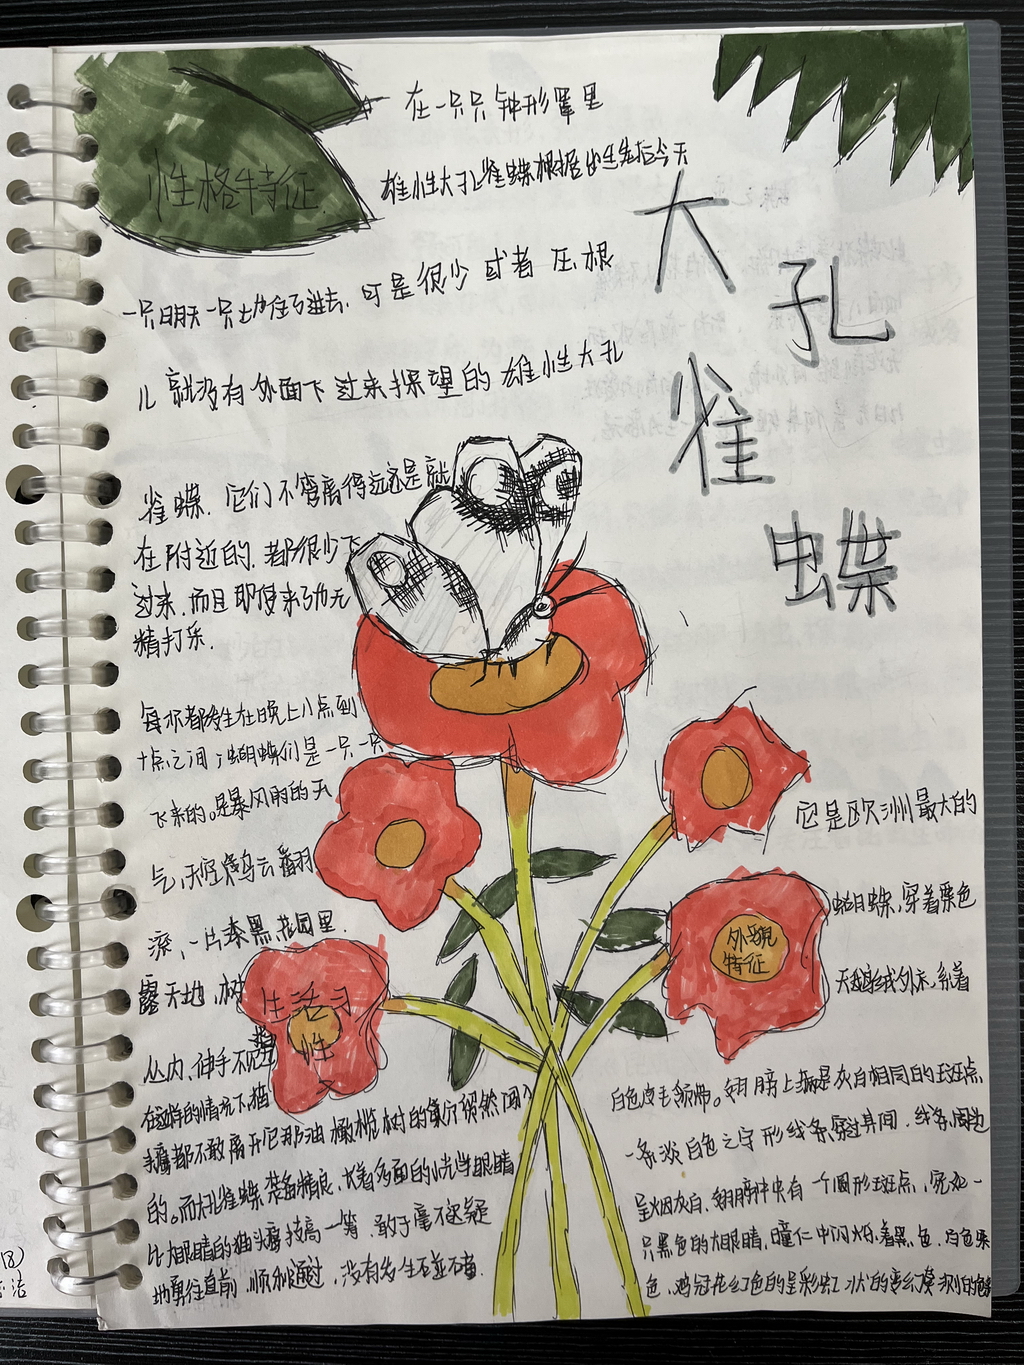 性格特征
在一只只钟形罩里
雄性大孔雀蝶根据出生先后今天
一只明天一只地住了进去.可是很少或者压根
儿就没有外面下过来探望的雄性大孔
雀蝶.它们不管离得远还是就
在附近的.都很少飞
过来.而且即使来了也无
精打采.
大孔雀蝶
每次都发生在晚上八点到
十点之间,蝴蝶们是一只一只
飞来的。是暴风雨的天
气,天空乌云翻
滚,一片漆黑.花园里.
露天地,树
丛内、伸手不见
生活习性
在这样的情况下猫
头鹰都不敢离开它那油橄榄树的贸然闯入
的。而大孔雀蝶装备精良,长着多面的小光学眼睛
比大眼睛的猫头鹰技高一筹.敢于毫不迟疑
地勇往直前.顺利通过,没有发生
外貌特征
它是欧洲最大的
蝴蝶,穿着栗色
天鹅绒外衣,系着
白色皮毛领带。翅膀上满是灰白相间的斑点
一条淡白色之字形线条穿过其间.线条周边
呈烟灰白.翅膀中央有一个圆形斑点,宛如一
只黑色的大眼睛.瞳仁中闪烁着黑色.白色栗
色.鸡冠花红色的呈彩虹状的变幻莫测的色